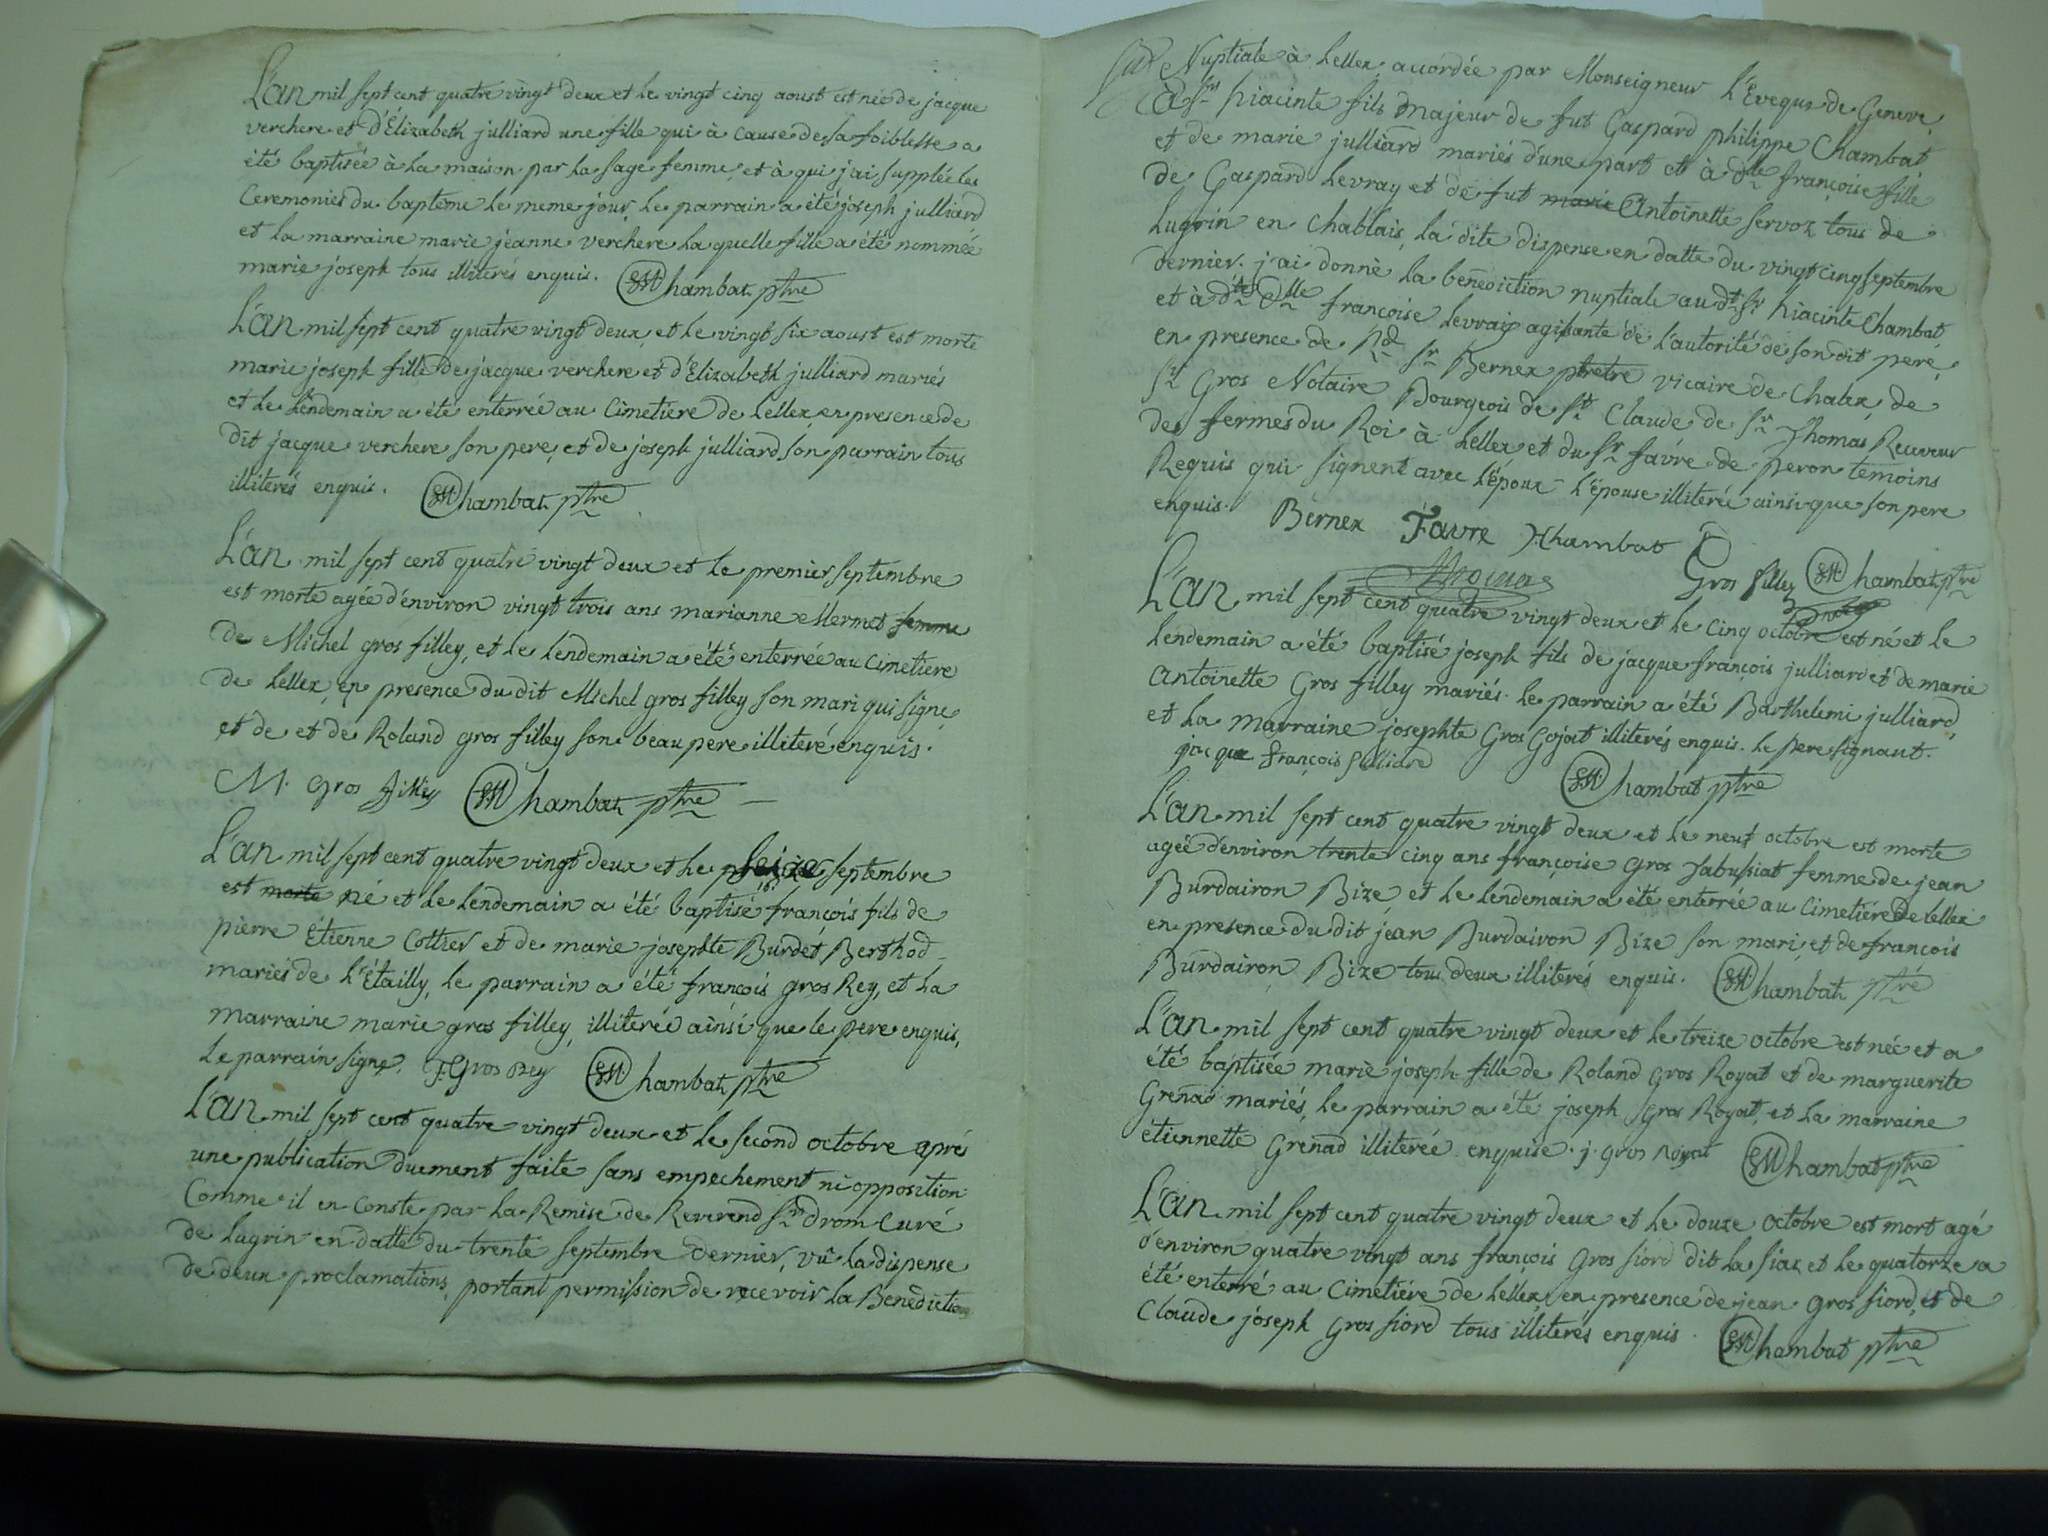 L'an mil sept cent quatre vingt deux et le vingt cinq aoust est née de jacque
verchere et d'Élizabeth julliard une fille qui à cause de sa foiblesse a
été baptisée à la maison par la sage femme, et à qui j'ai supplée les
Ceremonies du baptême le meme jour, le parrain a été joseph julliard
et la marraine marie jeanne verchere la quelle fille a été nommée
marie joseph tous illiterés enquis. Chambat ptre
L'an mil sept cent quatre vingt deux et le vingt six aoust est morte
marie joseph fille de jacque verchere et d'Elizabeth julliard mariés
et le lendemain a été enterrée au Cimetiere de Lellex en presence de
dit jacque verchere son pere, et de joseph julliard son parrain tous
illiterés enquis. Chambat ptre
L'an mil sept cent quatre vingt deux et le premier septembre
est morte agée d'environ vingt trois ans marianne Mermet femme
de Michel gros filley, et le lendemain a été enterrée au Cimetiere
de Lellex, en presence du dit Michel gros filley son mari qui signe,
et de et de Roland gros filley son beau pere illiteré enquis.
M. gros filley Chambat ptre
L'an mil sept cent quatre vingt deux et le seize septembre
16.
est morte né et le lendemain a été baptisé françois fils de
pierre Étienne Cottier et de marie josephte Burdet Berthod
mariés de l'Étailly, le parrain a été françois gros Rey, et la
marraine marie gros filley, illiterée ainsi que le pere enquis,
le parrain signe. F. Gros Rey Chambat ptre
L'an mil sept cent quatre vingt deux et le second octobre aprés
une publication duement faite sans empechement ni opposition
Comme il en Conste par la Remise de Reverend Sr. drom Curé
de Lugrin en datte du trente septembre dernier, vû la dispense
de deux proclamations, portant permission de recevoir la Benediction
Nuptiale à Lellex accordée par Monseigneur L'Eveque de Geneve
à Sr. hiacinte fils majeur de fut Gaspard philippe Chambat
et de marie julliard mariés d'une part et à dlle françoise fille
de Gaspard Levray et de fut marie Antoinette servoz tous de
Lugrin en Chablais, la dite dispense en datte du vingt cinq septembre
dernier. j'ai donné la benediction nuptiale au dt. Sr. hiacinte Chambat
et à dte Dlle françoise Levrai agissante de l'autorité de son dit pere,
en presence de Rd. Sr. Bernex prêtre vicaire de Chalex, de
Sr. Gros Notaire Bourgeois de St. Claude de Sr. Thomas Receveur
des fermes du Roi à Lellex et du Sr. favre de peron temoins
Requis qui signent avec l'époux l'épouse illiterée ainsi que son pere
enquis. Bernex Favre Hchambat
Thomas Gros filley Chambat ptre
L'an mil sept cent quatre vingt deux et le cinq octobre est né et le
lendemain a été baptisé joseph fils de jacque françois julliard et de marie
Antoinette Gros filley mariés. le parrain a été Barthelemi julliard,
et la marraine josephte Gros Gojat illiterés enquis. le pere signant.
jacque françois julliard Chambat ptre
L'an mil sept cent quatre vingt deux et le neuf octobre est morte
agée d'environ trente cinq ans françoise Gros Jabussiat femme de jean
Burdairon Bize, et le lendemain a été enterrée au Cimetiére de Lellex
en presence du dit jean Burdairon Bize son mari, et de françois
Burdairon Bize tous deux illiterés enquis. Chambat ptre
L'an mil sept cent quatre vingt deux et le treize octobre est née et a
été baptisée marie joseph fille de Roland gros Royat et de marguerite
Grenad mariés, le parrain a été joseph gros Royat, et la marraine
étiennette Grenad illiterée enquise. j. gros royat Chambat ptre
L'an mil sept cent quatre vingt deux et le douze octobre est mort agé
d'environ quatre vingt ans françois Gros fiord dit la siaz et le quatorze a
été enterré au Cimetiére de Lellex, en presence de jean Gros fiord, et de
Claude joseph Gros fiord tous illiterés enquis. Chambat ptre